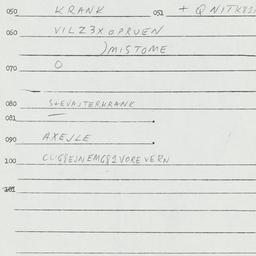 050 KRANK 051 + QNITK82
060 VILZ3XOPRUEN
)MISTOME
070 O
080 SLEVAJTERKRANK
081
090 AXEJLE
100 CLG8EJNEMG82VOREVERN
101